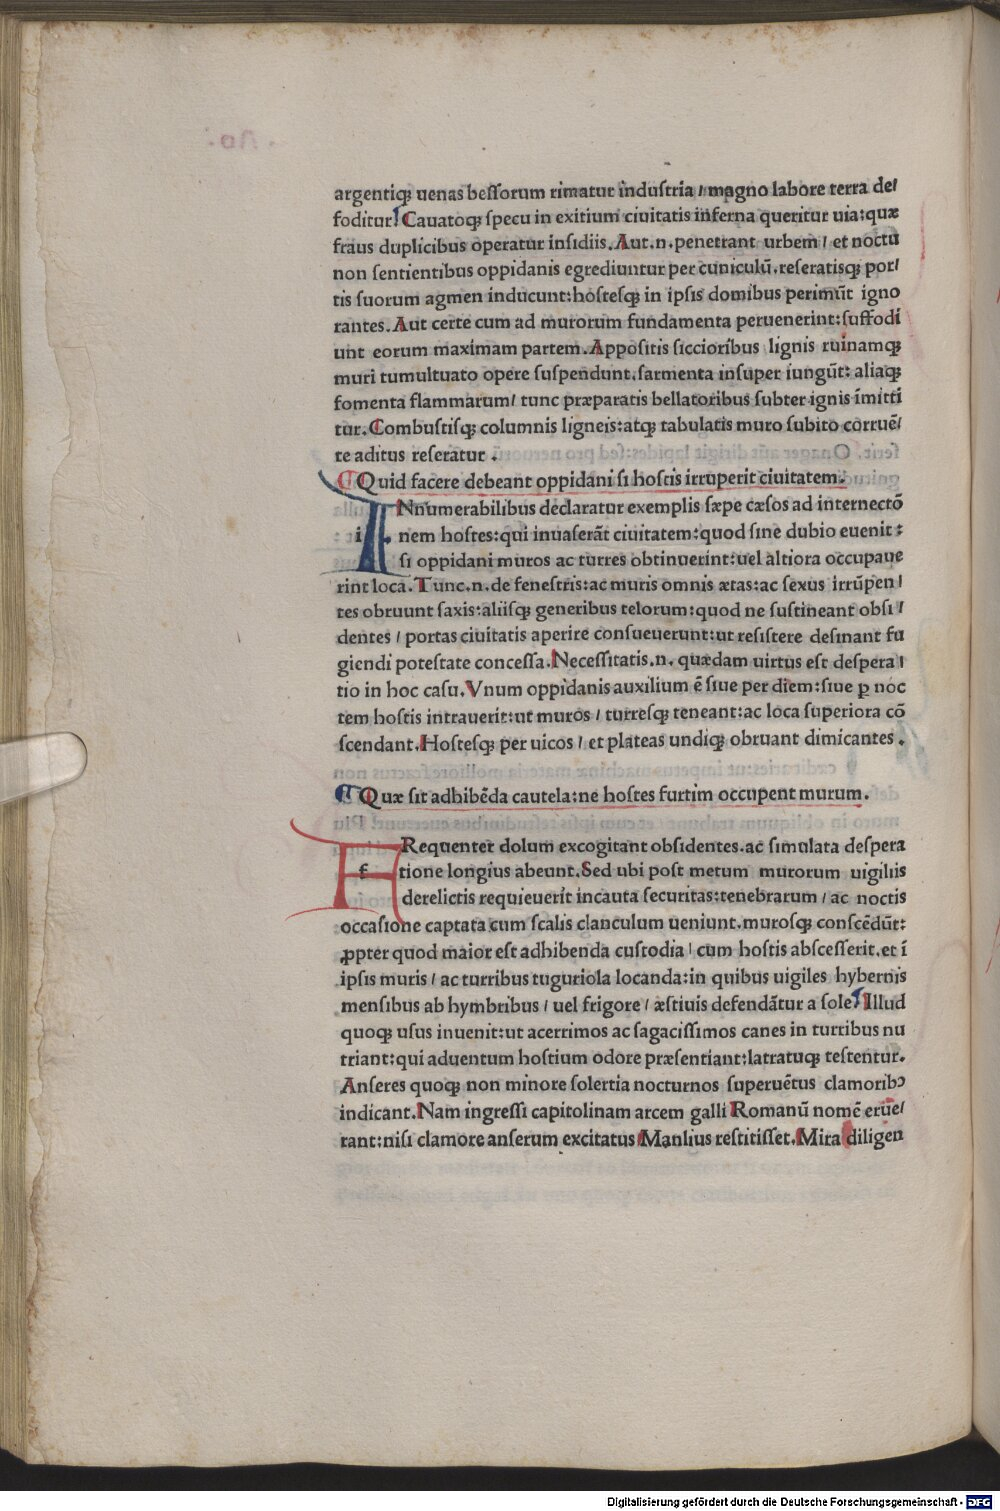 argentiqꝫ uenas beſſorum rimatur induſtria / magno labore terra de/
foditur. Cauatoqꝫ ſpecu in exitium ciuitatis inferna queritur uia: quæ
fraus duplicibus operatur inſidiis. Aut .n. penetrant urbem / et noctu
non ſentientibus oppidanis egrediuntur per cuniculū. reſeratisqꝫ por/
tis ſuorum agmen inducunt: hoſtesqꝫ in ipſis domibus perimūt igno
rantes. Aut certe cum ad murorum fundamenta peruenerint: ſuffodi
unt eorum maximam partem. Appoſitis ſiccioribus lignis ruinamqꝫ
muri tumultuato opere ſuſpendunt. ſarmenta inſuper iungūt: aliaqꝫ
fomenta flammarum / tunc præparatis bellatoribus ſubter ignis īmitti
tur. Combuſtiſqꝫ columnis ligneis: atqꝫ tabulatis muro ſubito corruē/
te aditus reſeratur .
Quid facere debeant oppidani ſi hoſtis irruperit ciuitatem.
i INnumerabilibus declaratur exemplis ſæpe cæſos ad internectō
nem hoſtes: qui inuaſerāt ciuitatem: quod ſine dubio euenit :
ſi oppidani muros ac turres obtinuerint: uel altiora occupaue
rint loca. Tunc .n. de feneſtris: ac muris omnis ætas: ac ſexus irrūpen /
tes obruunt ſaxis: aliiſqꝫ generibus telorum: quod ne ſuſtineant obſi /
dentes / portas ciuitatis aperire conſueuerunt: ut reſiſtere deſinant fu
giendi poteſtate conceſſa. Neceſſitatis .n. quædam uirtus eſt deſpera /
tio in hoc caſu. Vnum oppidanis auxilium ē ſiue per diem: ſiue ꝑ noc
tem hoſtis intrauerit: ut muros / turreſqꝫ teneant: ac loca ſuperiora cō
ſcendant. Hoſteſqꝫ per uicos / et plateas undiqꝫ obruant dimicantes .
Quæ ſit adhibēda cautela: ne hoſtes furtim occupent murum.
f FRequenter dolum excogitant obſidentes. ac ſimulata deſpera
tione longius abeunt. Sed ubi poſt metum murorum uigiliis
derelictis requieuerit incauta ſecuritas: tenebrarum / ac noctis
occaſione captata cum ſcalis clanculum ueniunt. muroſqꝫ conſcēdūt:
ꝓpter quod maior eſt adhibenda cuſtodia / cum hoſtis abſceſſerit. et ī
ipſis muris / ac turribus tuguriola locanda: in quibus uigiles hybernis
menſibus ab hymbribus / uel frigore / æſtiuis defendātur a ſole. Illud
quoqꝫ uſus inuenit: ut acerrimos ac ſagaciſſimos canes in turribus nu
triant: qui aduentum hoſtium odore præſentiant: latratuqꝫ teſtentur.
Anſeres quoqꝫ non minore ſolertia nocturnos ſuperuētus clamoribꝯ
indicant. Nam ingreſſi capitolinam arcem galli Romanū nomē erūe/
rant: niſi clamore anſerum excitatus Manlius reſtitiſſet. Mira diligen
Digitalisierung gefördert durch die Deutsche Forschungsgemeinschaft - DFG